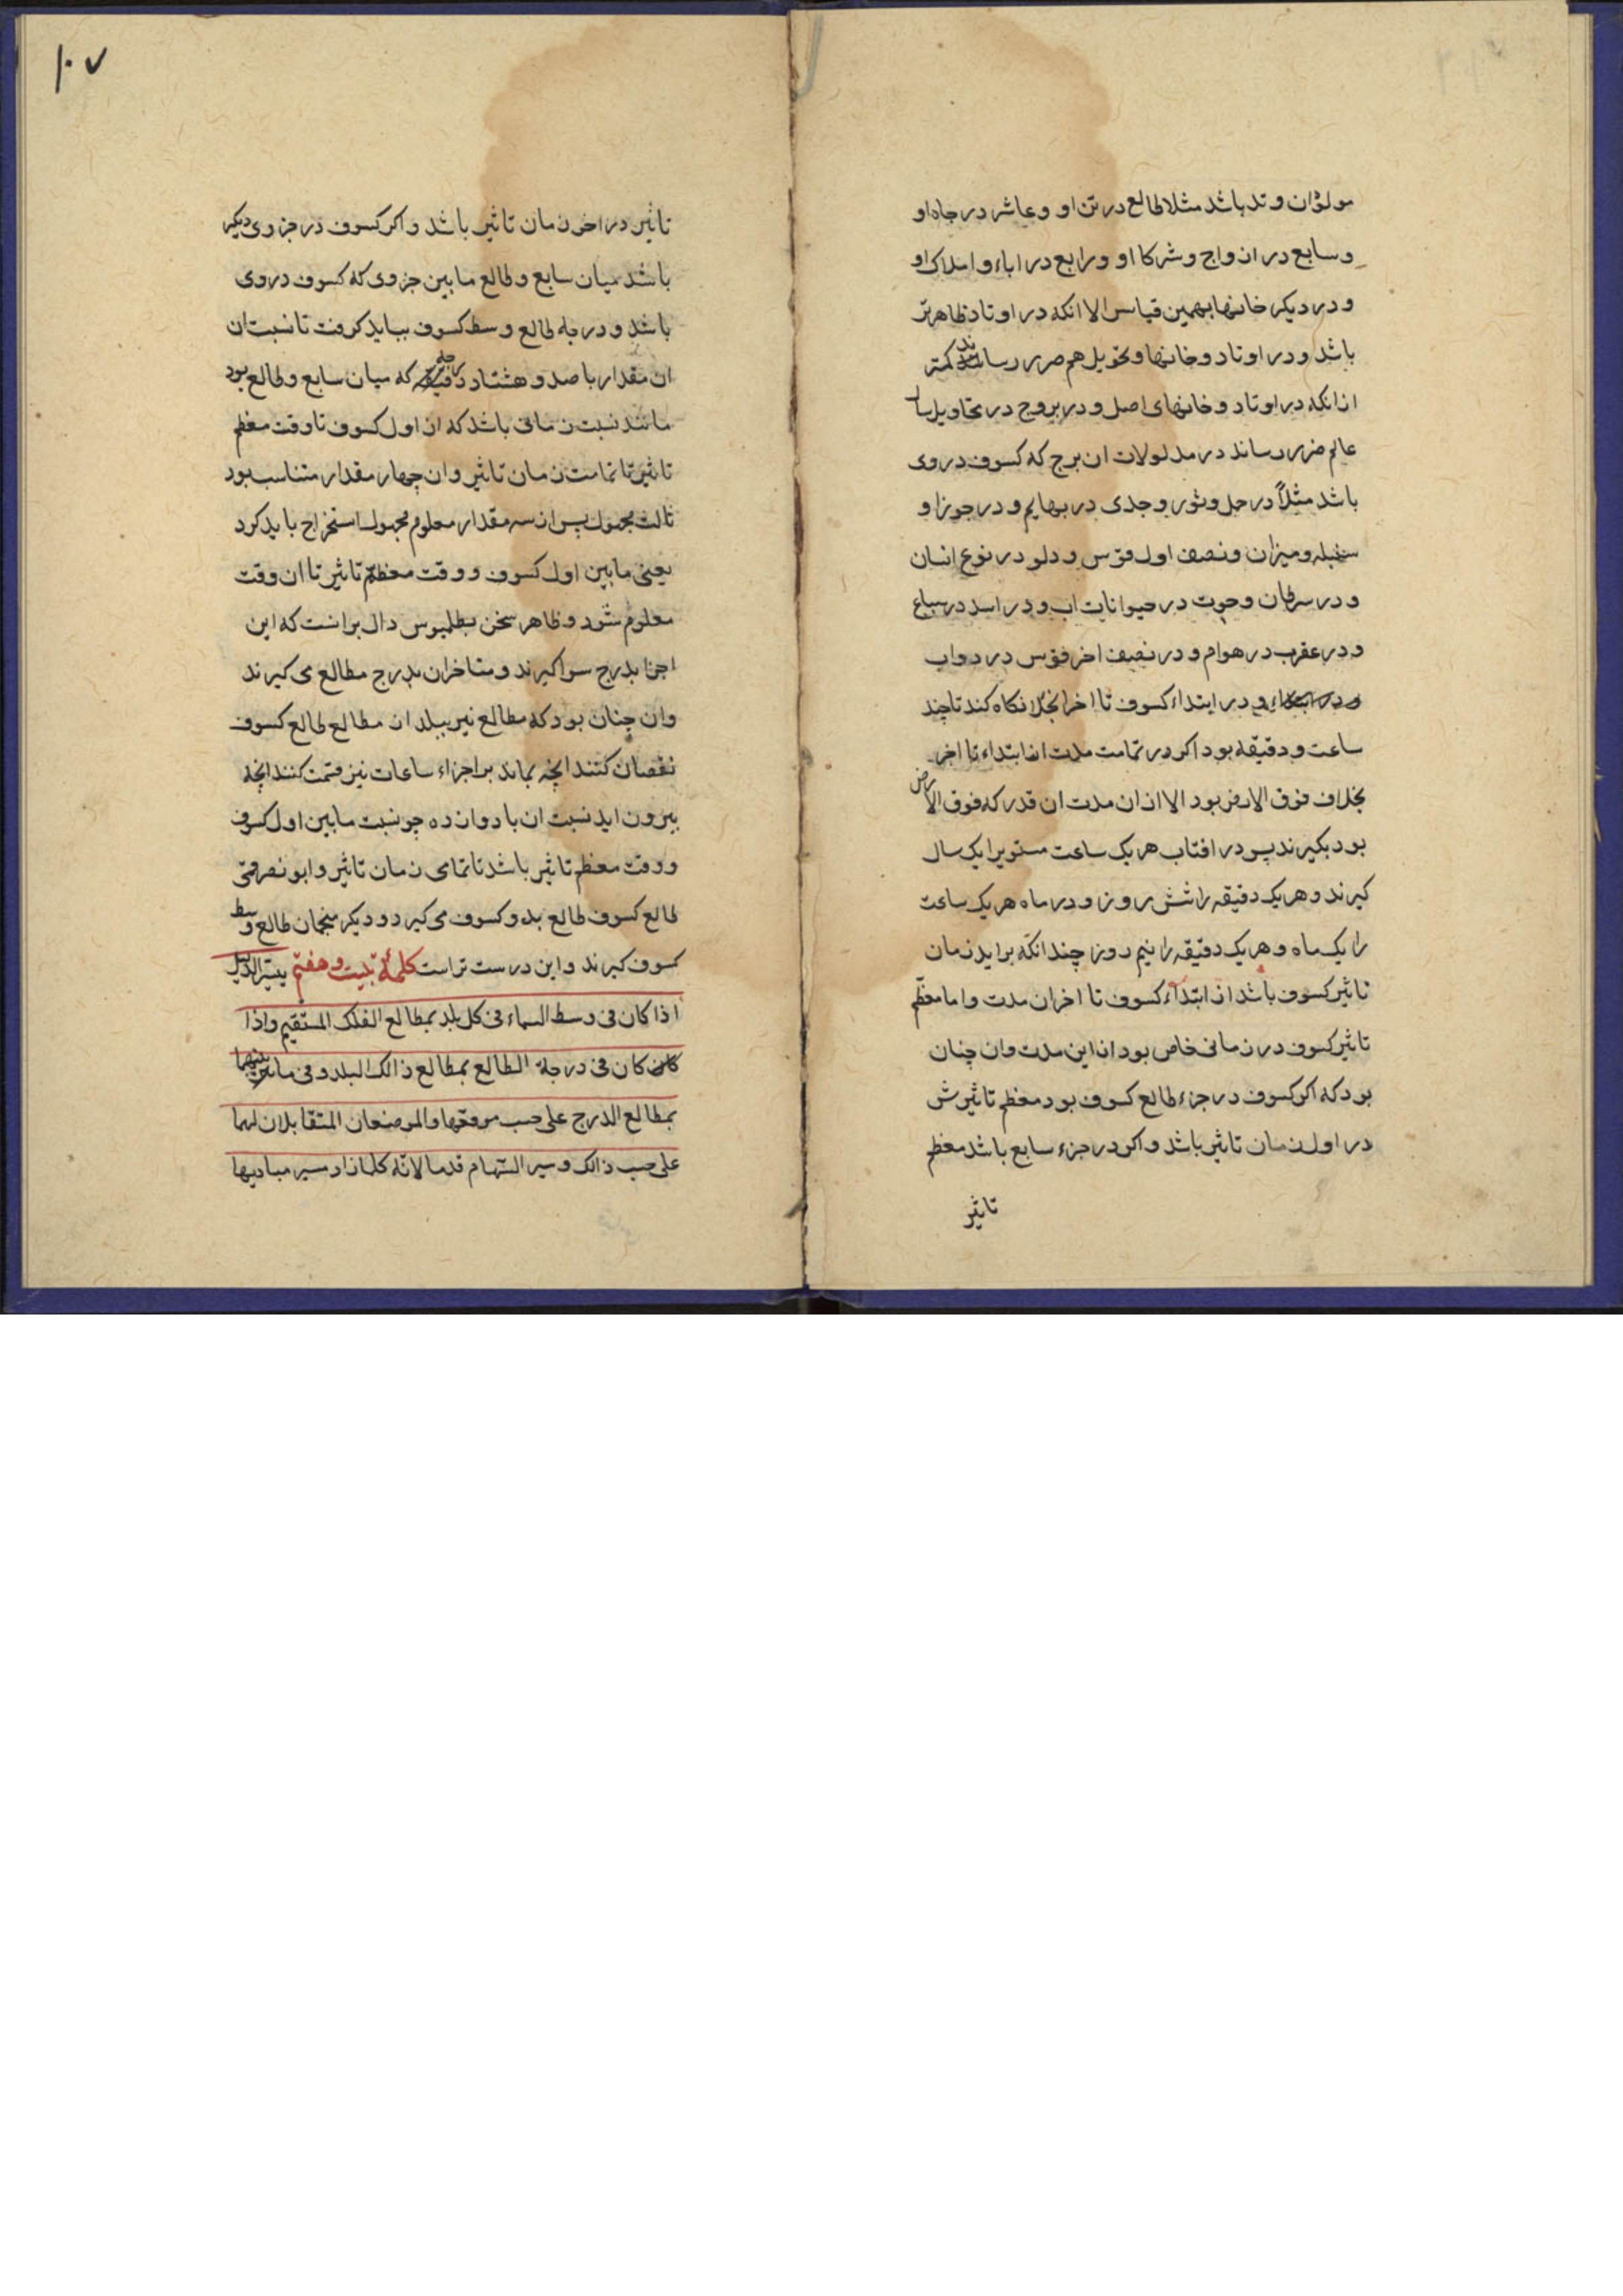 مولود ان وتد باشد مثلا طالع در تن او و عاشر در جاه او
و سابع در ازواج و شرکا او و رابع در اباء و املاک او
و در دیکر خانها بهمین قیاس الا انکه در اوتاد ظاهرتر
باشد و در اوتاد و خانها و تحویل هم ضرر رساند کمتر
از انکه در اوتاد و خانهای اصل و در بروج در تحاویل سال
عالم ضرر رساند در مدلولات ان برج که کسوف در وی
باشد مثلاً در حمل و ثور و جدی در بهایم و در جوزا و
سنبله و میزان و نصف اول قوس و دلو در نوع انسان
و در سرطان و حوت در حیوانات اب و در اسد در سباع
و در عقرب در هوام و در نصف اخر قوس در دواب
و در ابتداء کسوف تا اخر انجلا نکاه کند تا چند
ساعت و دقیقه بود اکر در تمامت مدت از ابتداء تا اخر
بخلاف فوق الارض بود الا از ان مدت ان قدر که فوق الارض
بود بکیرند پس در افتاب هر یک ساعت مستوی را یک سال
کیرند و هر یک دقیقه را شش روز و در ماه هر یک ساعت
را یک ماه و هر یک دقیقه را نیم روز چندانکه براید زمان
تاثیر کسوف باشد از ابتداء کسوف تا اخر ان مدت و اما معظم
تاثیر کسوف در زمانی خاص بود از این مدت وان چنان
بود که اکر کسوف در جزء طالع کسوف بود معظم تاثیرش
در اول زمان تاثیر باشد و اکر در جزء سابع باشد معظم
تاثیر
۱۰۷
تاثیر در اخر زمان تاثیر باشد و اکر کسوف در جزوی دیکر
باشد میان سابع و طالع مابین جزوی که کسوف در وی
باشد و درجه طالع وسط کسوف بباید کرفت تا نسبت ان
ان مقدار با صد و هشتاد درجه که میان سابع و طالع بود
مانند نسبت زمانی باشد که از اول کسوف تا وقت معظم
تاثیر تا تمامت زمان تاثیر وان چهار مقدار متناسب بود
ثالث مجهول پس از سه مقدار معلوم مجهول استخراج باید کرد
یعنی مابین اول کسوف و وقت معظم تاثیر تا ان وقت
معلوم شود و ظاهر سخن بطلمیوس دال برانست که این
اجزا بدرج سوا کیرند و متاخران بدرج مطالع می کیرند
وان چنان بود که مطالع نیر ببلد از مطالع طالع کسوف
نقصان کنند انچه بماند بر اجزاء ساعات نیز قسمت کنند انچه
بیرون اید نسبت ان با دوازده چو نسبت مابین اول کسوف
و وقت معظم تاثیر باشد تا تمامی زمان تاثیر و ابو نصر قمی
طالع کسوف طالع بدو کسوف می کیرد و دیکر منجمان طالع وسط
کسوف کیرند و این درست تر است کلمهٔ بیست و هفتم یسیر الدلیل
اذا کان فی وسط السماء فی کل بلد بمطالع الفلک المستقیم و اذا
کان کان فی درجة الطالع بمطالع ذالک البلد و فی ما بینهما
بمطالع الدرج علی حسب موقعها والموضعان المتقابلان لهما
علی حسب ذالک و سیر السّهام قدما لانّه کلما زاد سیر مبادیها